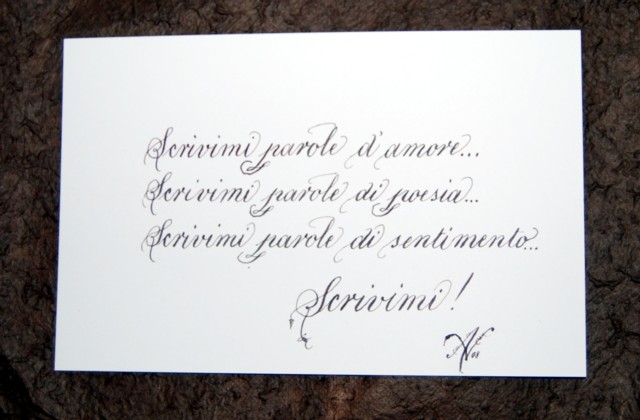 Scrivimi parole d'amore...
Scrivimi parole di poesia...
Scrivimi parole di sentimento...
Scrivimi!